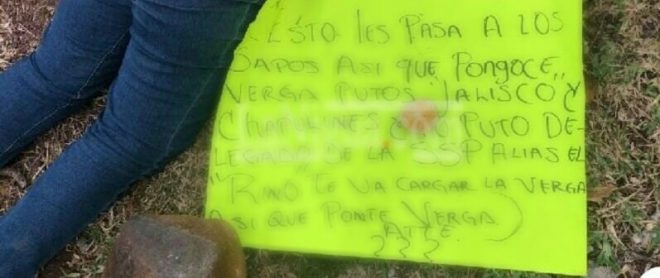 ESTO LES PASA A LOS
SAPOS ASI QUE PONGOCE
VERGA PUTOS "JALISCO Y
CHAPULINES PUTO DE-
LEGADO DE LA SSP ALIAS EL
"RINO TE VA CARGAR LA VERGA
ASI QUE PONTE VERGA
ATTE
???